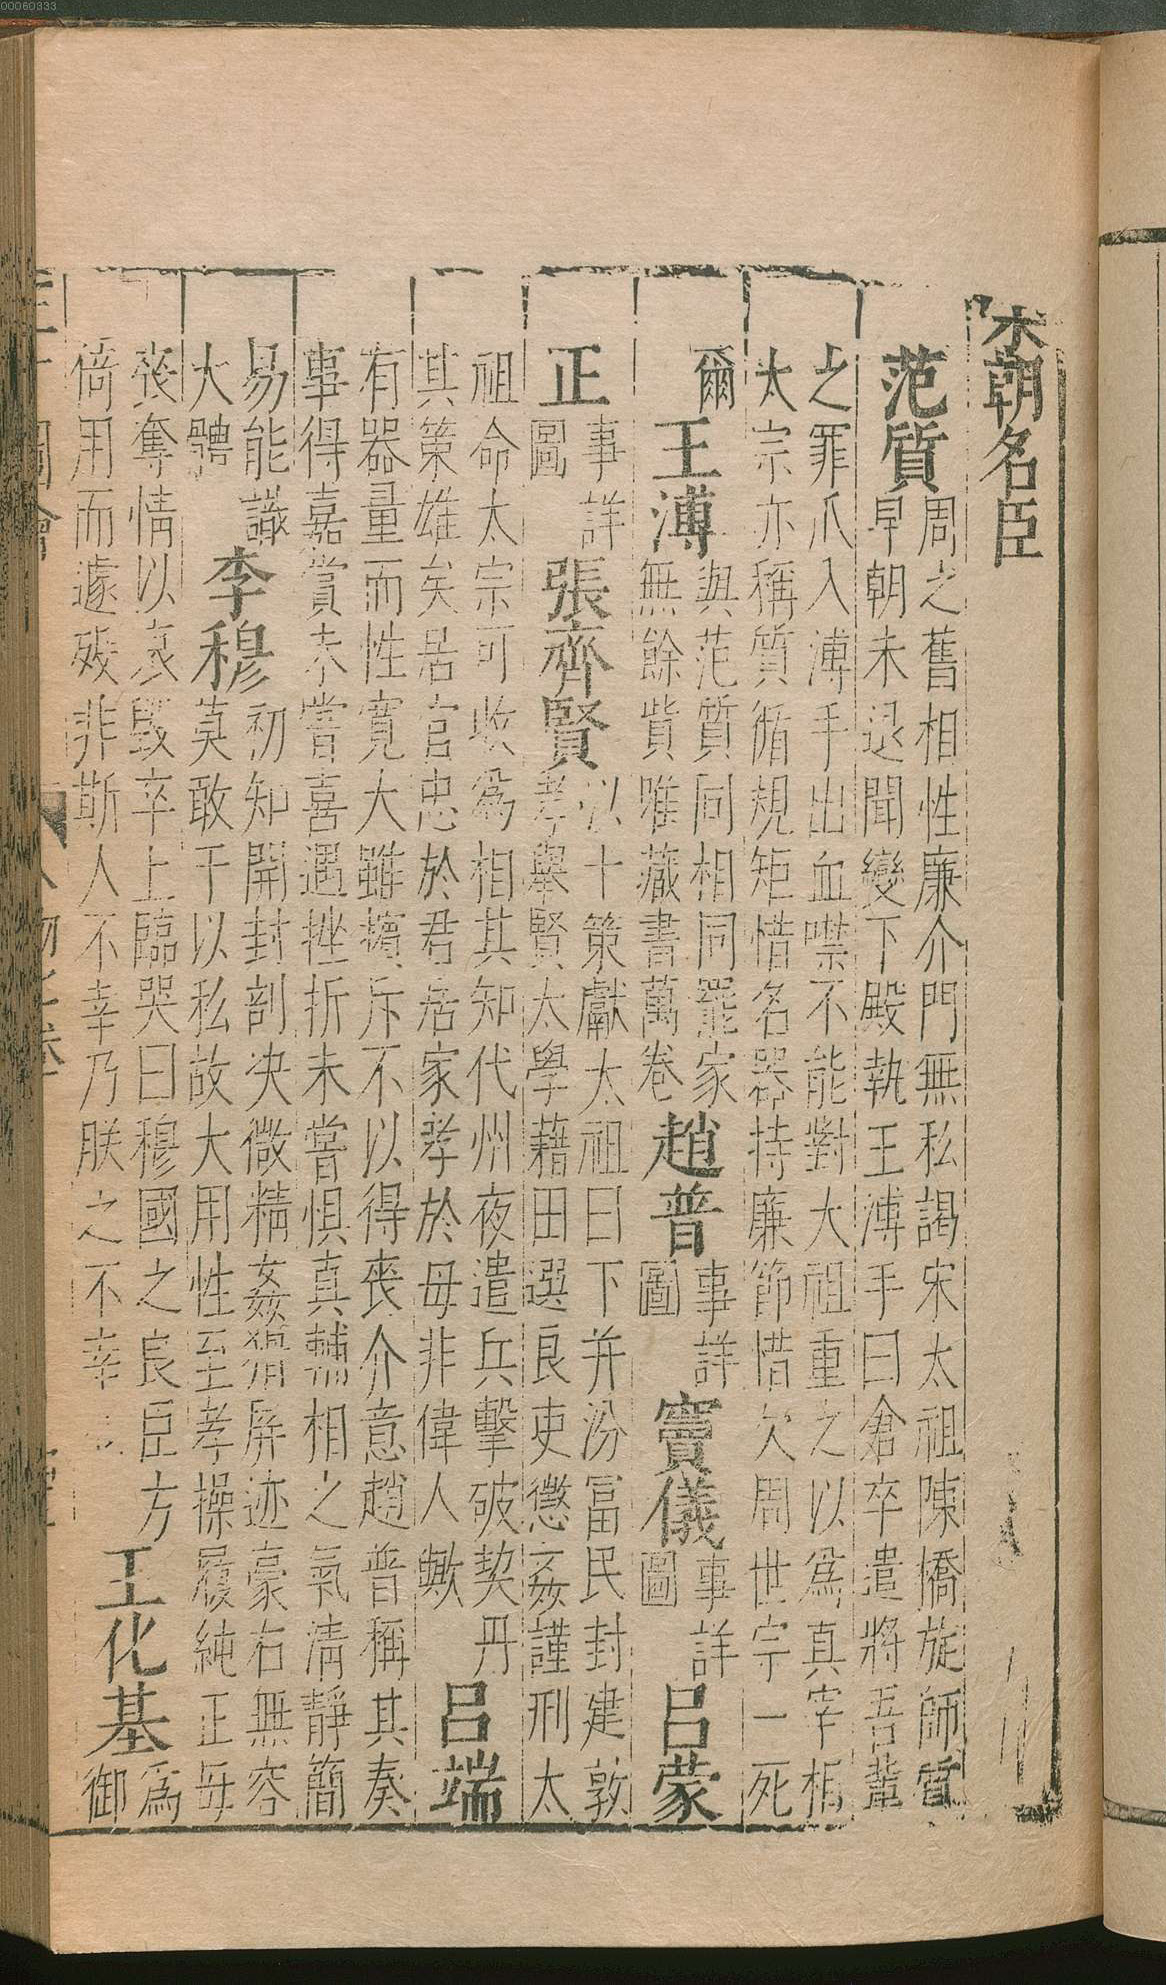 00060333
宋朝名臣
范質
周之舊相性廉介門無私謁宋太祖陳橋旋師質
早朝未退聞變下殿執王溥手曰倉卒遣將吾輩
之罪爪入溥手出血噤不能對太祖重之以爲真宰相
太宗亦稱質循規矩惜名器持廉節惜欠周世宗一死
爾
王溥
與范質同相同罷家
無餘貲唯藏書萬卷
趙普
事詳
圖
竇儀
事詳
圖
呂蒙
正
事詳
圖
張齊賢
以十策獻太祖曰下并汾冨民封建敦
孝舉賢太學藉田選良吏懲姦謹刑太
祖命太宗可收爲相其知代州夜遣兵擊破契丹
其策雄矣居官忠於君居家孝於母非偉人歟
呂端
有器量而性寬大雖擯斥不以得喪介意趙普稱其奏
事得嘉賞未嘗喜遇挫折未嘗惧真輔相之氣清靜簡
易能識
大體
李穆
初知開封剖決微精姦猾屏迹豪右無容
莫敢干以私故大用性至孝操履純正毎
喪奪情以哀毀卒上臨哭曰穆國之良臣方
倚用而遽歿非斯人不幸乃朕之不幸
王化基
爲
御
三才圖會
人物七卷